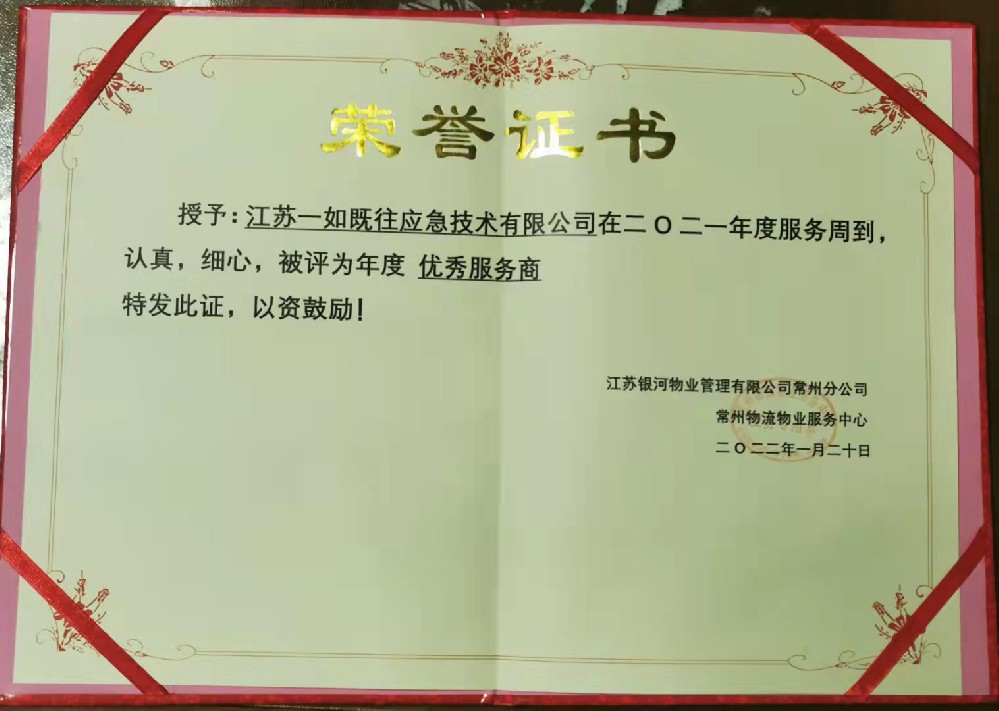 荣誉证书
授予：江苏一如既往应急技术有限公司在二〇二一年度服务周到，
认真，细心，被评为年度 优秀服务商
特发此证，以资鼓励！
江苏银河物业管理有限公司常州分公司
常州物流物业服务中心
二〇二二年一月二十日